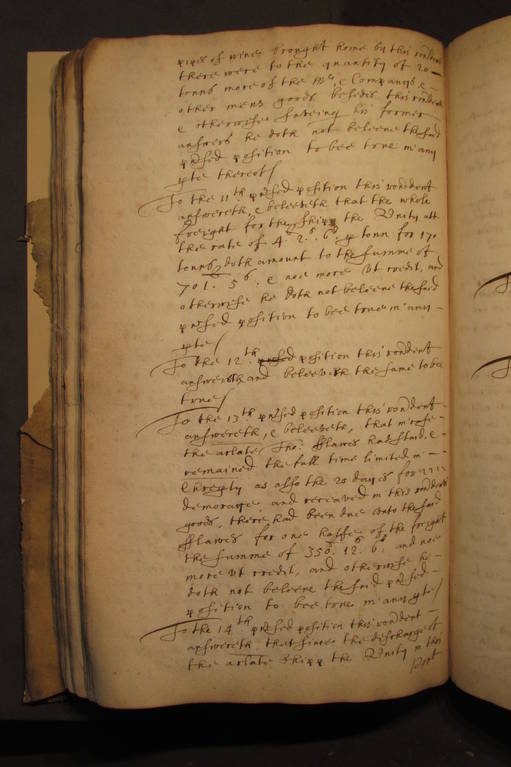 pipes of wines brought home by this rendent
there were to the quantity of 20 -
tonns more of the Mr, & Companys &
other mens goods besides this rendents
& otherwise saveing his former
answers he doth not beleeve the said
prted position to bee true in any
pte thereof /
To the 11th prted position this rendent
answereth, & beleeveth that the whole
freight for the shipp the Unity att
the rate of 4. 2. 6 p tonn for 170
tonns doth amount to the summe of
701. 5. & noe more Ut credit, and
otherwise he doth not beleeve the said
prted position to bee true in any -
pte /
To the 12th position this rendent
answereth and beleeveth the same to bee
true /
To the 13th prted position this rendent
answereth, & beleeveth, that in case
the arlate Tho: fflawes had staid, & -
remained the full time limited in -
Chrepty as also the 20 dayes for
demorage, and received in this rendents
goods, there had been due unto the said
fflawes for one halfe of the freight
the summe of 350. 12. 6. and noe
more Ut credit, and otherwise he -
doth not beleeve the said prted -
position to bee true in any pte /
To the 14th prted position this rendent -
answereth that since the discharge of
the arlate Shipp the Unity in this
Port